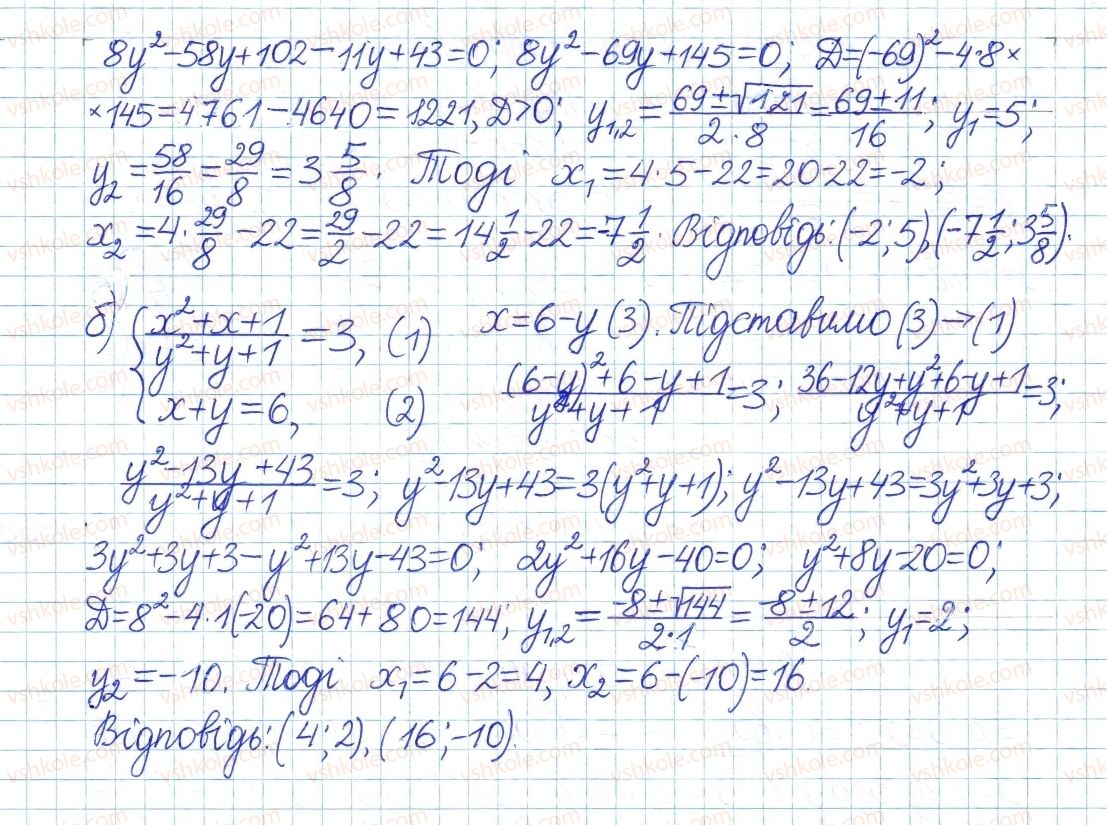 8y²-58y+102-11y+43=0; 8y²-69y+145=0; D=(-69)²-4·8×
×145=4761-4640=1221, D>0; y₁,₂=(69±√121)/(2·8)=(69±11)/16; y₁=5;
y₂=58/16=29/8=3 5/8. Тоді x₁=4·5-22=20-22=-2;
x₂=4·29/8-22=29/2-22=14 1/2-22=-7 1/2. Відповідь: (-2;5), (-7 1/2; 3 5/8).
б) { (x²+x+1)/(y²+y+1)=3, (1) x=6-y (3). Підставимо (3)→(1)
x+y=6, (2) ((6-y)²+6-y+1)/(y²+y+1)=3; (36-12y+y²+6-y+1)/(y²+y+1)=3;
(y²-13y+43)/(y²+y+1)=3; y²-13y+43=3(y²+y+1); y²-13y+43=3y²+3y+3;
3y²+3y+3-y²+13y-43=0; 2y²+16y-40=0; y²+8y-20=0;
D=8²-4·1(-20)=64+80=144; y₁,₂=(-8±√144)/(2·1)=(-8±12)/2; y₁=2;
y₂=-10. Тоді x₁=6-2=4, x₂=6-(-10)=16.
Відповідь: (4;2), (16;-10).
vshkole.com